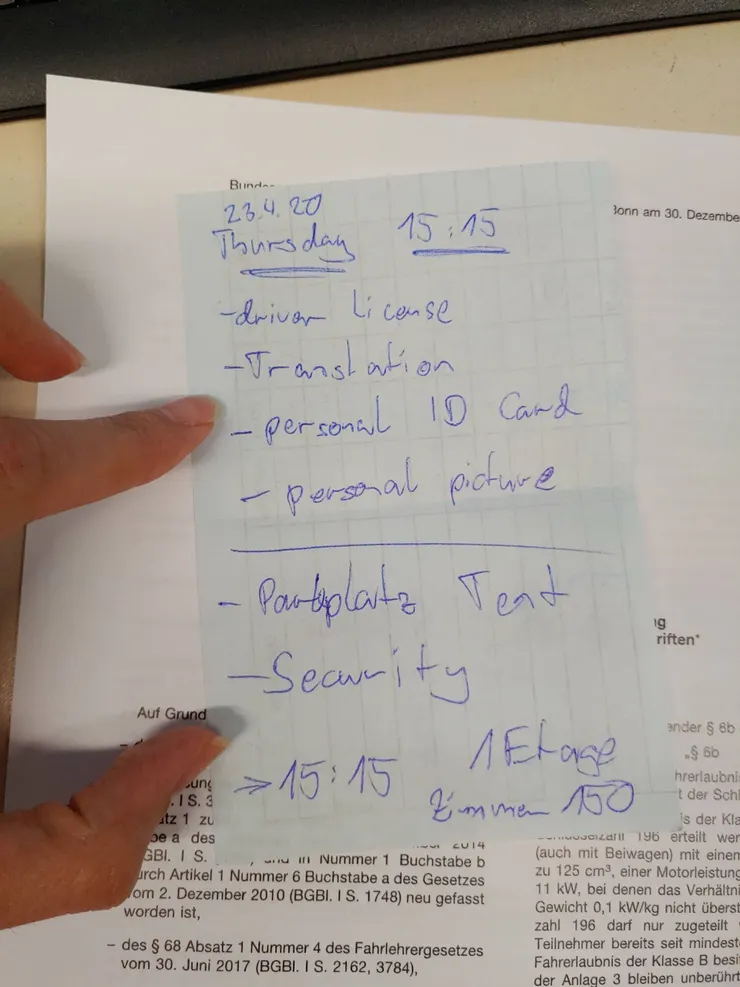 23.4.20
Thursday 15:15
-driver License
-Translation
- personal ID Card
- personal picture
- Parkplatz Tent
-Security
->15:15 1 Etage
Zimmer 150
Bonn am 30. Dezembe
riften*
Auf Grund
ander § 6b
„§ 6b
I S. 3
atz 1 zu
be a des
GBl. I S.
2014
und in Nummer 1 Buchstabe b
urch Artikel 1 Nummer 6 Buchstabe a des Gesetzes
om 2. Dezember 2010 (BGBl. I S. 1748) neu gefasst
worden ist,
– des § 68 Absatz 1 Nummer 4 des Fahrlehrergesetzes
vom 30. Juni 2017 (BGBl. I S. 2162, 3784),
hrerlaubni
t der Schl
is der Kla
196 erteilt wer
(auch mit Beiwagen) mit einem
zu 125 cm³, einer Motorleistung
11 kW, bei denen das Verhältni
Gewicht 0,1 kW/kg nicht überst
zahl 196 darf nur zugeteilt
Teilnehmer bereits seit mindest
Fahrerlaubnis der Klasse B besi
der Anlage 3 bleiben unberührt